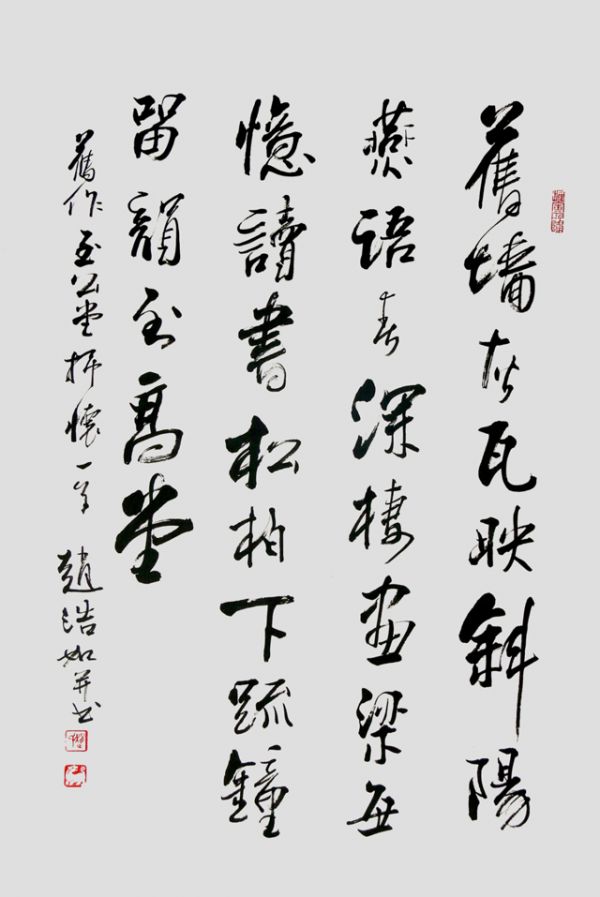 舊墻灰瓦映斜陽
燕語春深棲画梁每
憶讀書松柏下疏鐘
留韻至高堂
舊作至公堂抒懷一首 趙浩如并书